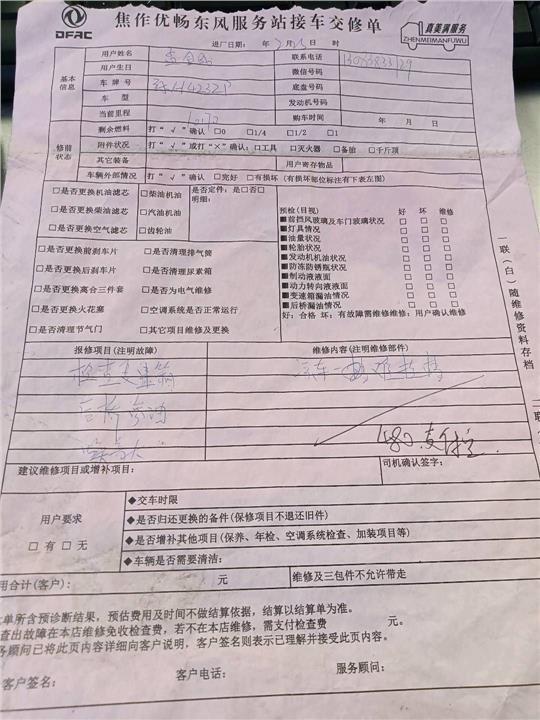 DFAC
焦作优畅东风服务站接车交修单
真美满服务
ZHENMEIMANFUWU
进厂日期: 年 月 日 时
基本信息
用户姓名
联系电话
用户生日
微信号码
车牌号
底盘号码
车 型
发动机号码
当前里程
购车时间 年 月 日
修前状态
剩余燃料 打“√”确认 □0 □1/4 □1/2 □1
附件状况 打“√”或打“×”确认:□工具 □灭火器 □备胎 □千斤顶
其它装备
用户寄存物品
车辆外部情况 打“√”确认 □完好 □有损坏 (有损坏部位标注有下表左图)
□是否更换机油滤芯 □柴油机油
□是否更换柴油滤芯 □汽油机油
□是否更换空气滤芯 □齿轮油
是否定件: 是□否□
明细:
□是否更换前刹车片 □是否清理排气筒
□是否更换后刹车片 □是否清理尿素箱
□是否更换离合三件套 □是否为电气维修
□是否更换火花塞 □空调系统是否正常运行
□是否清理节气门 □其它项目维修及更换
预检(目视) 好 坏 维修
■前挡风玻璃及车门玻璃状况 □ □ □
■灯具情况 □ □ □
■油量状况 □ □ □
■轮胎状况 □ □ □
■发动机机油状况 □ □ □
■防冻防锈瓶状况 □ □ □
■制动液液面 □ □ □
■动力转向液液面 □ □ □
■变速箱漏油情况 □ □ □
■后桥漏油情况 □ □ □
好: 合格 坏: 有故障需维修维修: 用户确认维修
一联(白)随维修资料存档
报修项目(注明故障)
维修内容(注明维修部件)
检查变速箱
后桥
480
建议维修项目或增补项目:
司机确认签字:
用户要求
□ 有 □ 无
◆交车时限
◆是否归还更换的备件(保修项目不退还旧件)
◆是否增补其他项目(保养、年检、空调系统检查、加装项目等)
◆车辆是否需要清洁:
用合计(客户): 元
维修及三包件不允许带走
单所含预诊断结果, 预估费用及时间不做结算依据, 结算以结算单为准。
查出故障在本店维修免收检查费, 若不在本店维修, 需支付检查费 元。
务顾问已将此页内容详细向客户说明, 客户签名则表示已理解并接受此页内容。
客户签名: 客户电话: 服务顾问: